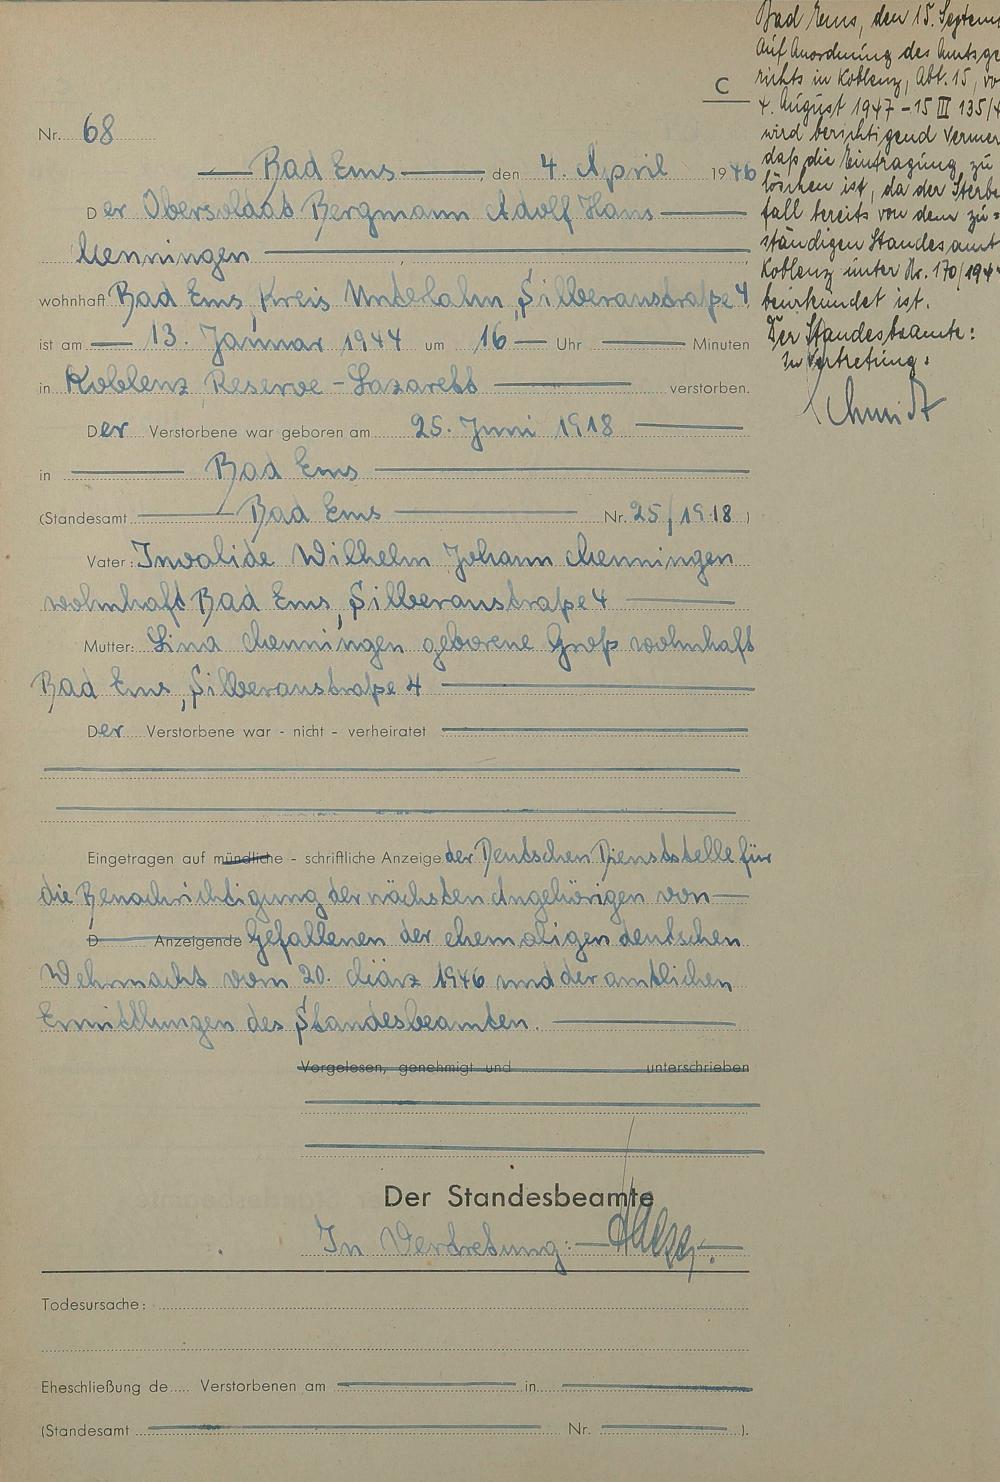 C
Nr. 68
Bad Ems, den 4. April 1946
Der Obersoldat Bergmann Adolf Hans
Menningen
wohnhaft Bad Ems, Kreis Unterlahn, Silberaustraße 4
ist am 13. Januar 1944 um 16 Uhr Minuten
in Koblenz, Reserve-Lazarett verstorben.
Der Verstorbene war geboren am 25. Juni 1918
in Bad Ems
(Standesamt Bad Ems Nr. 25/1918)
Vater: Invalide Wilhelm Johann Menningen
wohnhaft Bad Ems, Silberaustraße 4
Mutter: Lina Menningen geborene Groß wohnhaft
Bad Ems, Silberaustraße 4
Der Verstorbene war - nicht - verheiratet
Eingetragen auf mündliche - schriftliche Anzeige der Deutschen Dienststelle für
die Benachrichtigung der nächsten Angehörigen von
D Anzeigende Gefallenen der ehemaligen deutschen
Wehrmacht vom 20. März 1946 und der amtlichen
Ermittlungen des Standesbeamten.
Vorgelesen, genehmigt und unterschrieben
Der Standesbeamte
In Vertretung:
Todesursache:
Eheschließung de Verstorbenen am in
(Standesamt Nr. ).
Bad Ems, den 15. Septem
Auf Anordnung des Amtsge
richts in Koblenz, Abt. 15, vo
4. August 1947 - 15 III 135/4
wird berichtigend vermer
daß die Eintragung zu
löschen ist, da der Sterbe
fall bereits von dem zu=
ständigen Standesamt
Koblenz unter Nr. 170/194
beurkundet ist.
Der Standesbeamte:
In Vertretung:
Schmidt